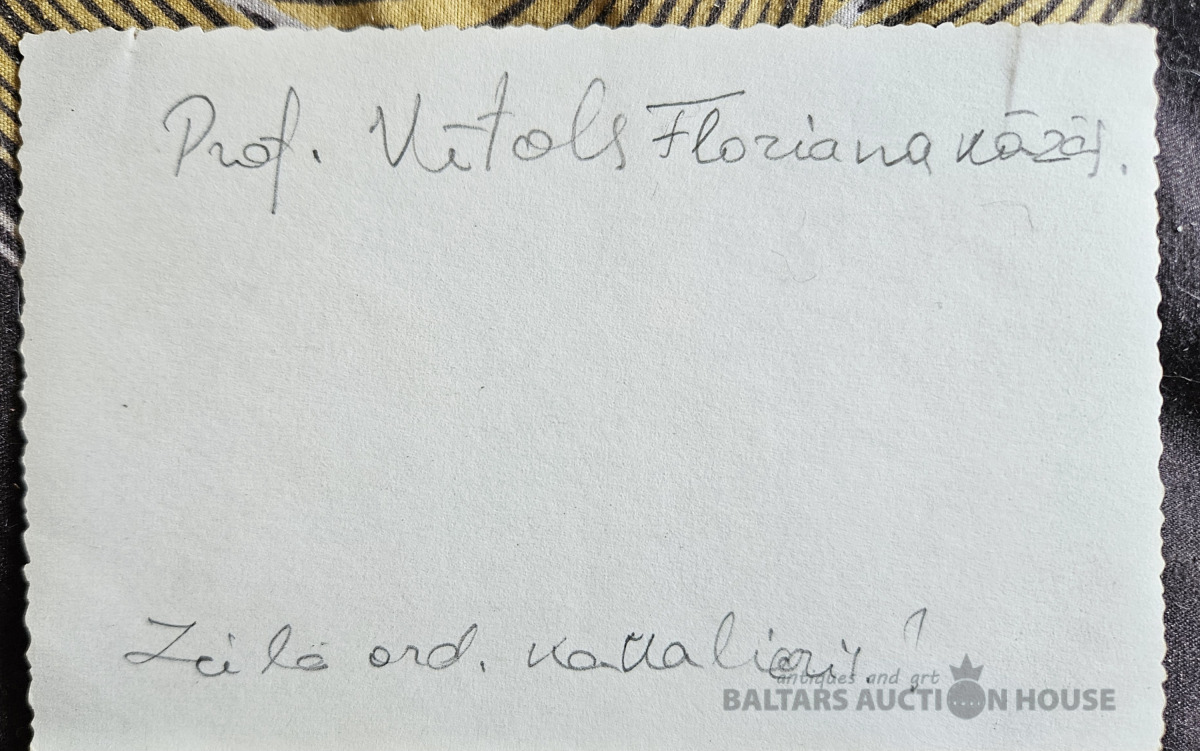 Prof. Vītols Floriana kāzās.
Zaļā ord. kavalieris!
antiques and art
BALTARS AUCTION HOUSE